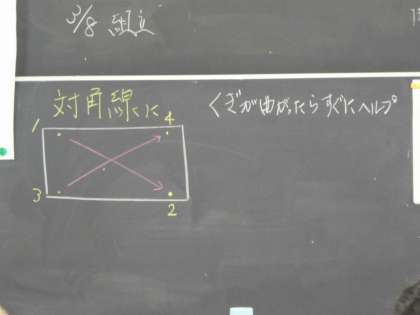 3/8 組立
対角線に
くぎが曲がったらすぐにヘルプ
1
4
3
2